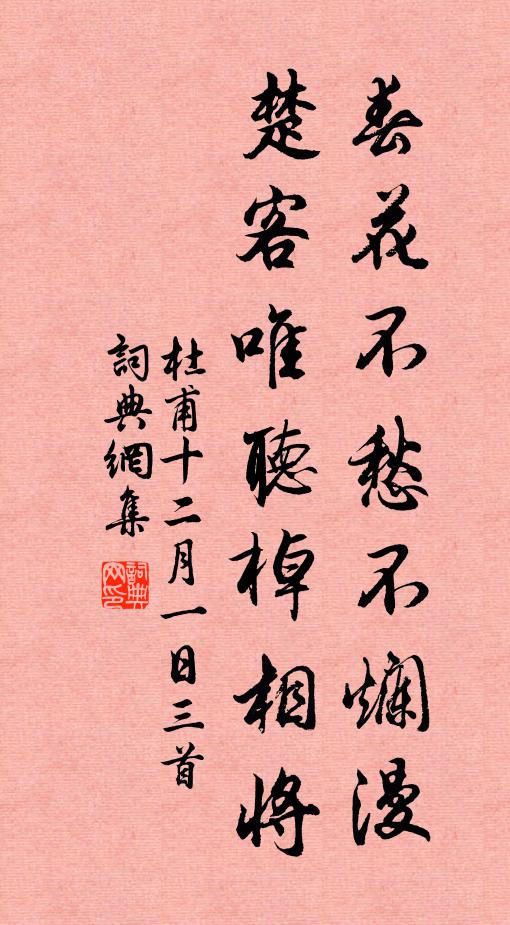 春花不愁不爛漫
楚客唯聽棹相將
杜甫十二月一日三首
詞典網集
詞典
网印